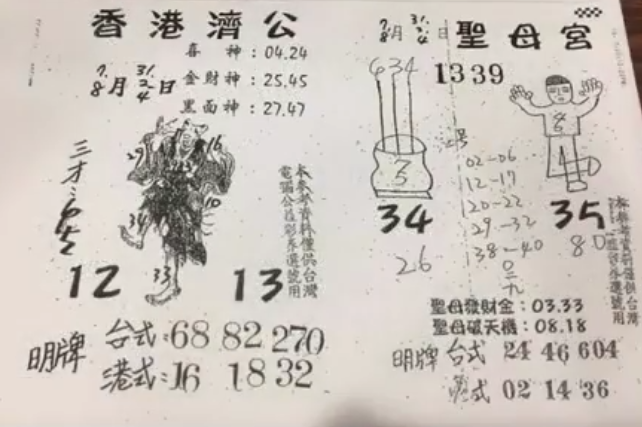 香港濟公
喜神：04.24
金財神：25.45
黑面神：27.47
7. 31.
8月 2 日
4
29
16
34
10
33
12
13
本參考資料僅供台灣
電腦公益彩券選號用
明牌
台式：68 82 270
港式：16 18 32
7. 31.
8月 2. 日
4
聖母宮
634
13 39
7
5
34
26
02-06
12-17
20-22
29-32
38-40
35
80
本參考資料僅供台灣
選號用
聖母發財金：03.33
聖母破天機：08.18
明牌 台式 24 46 604
式 02 14 36